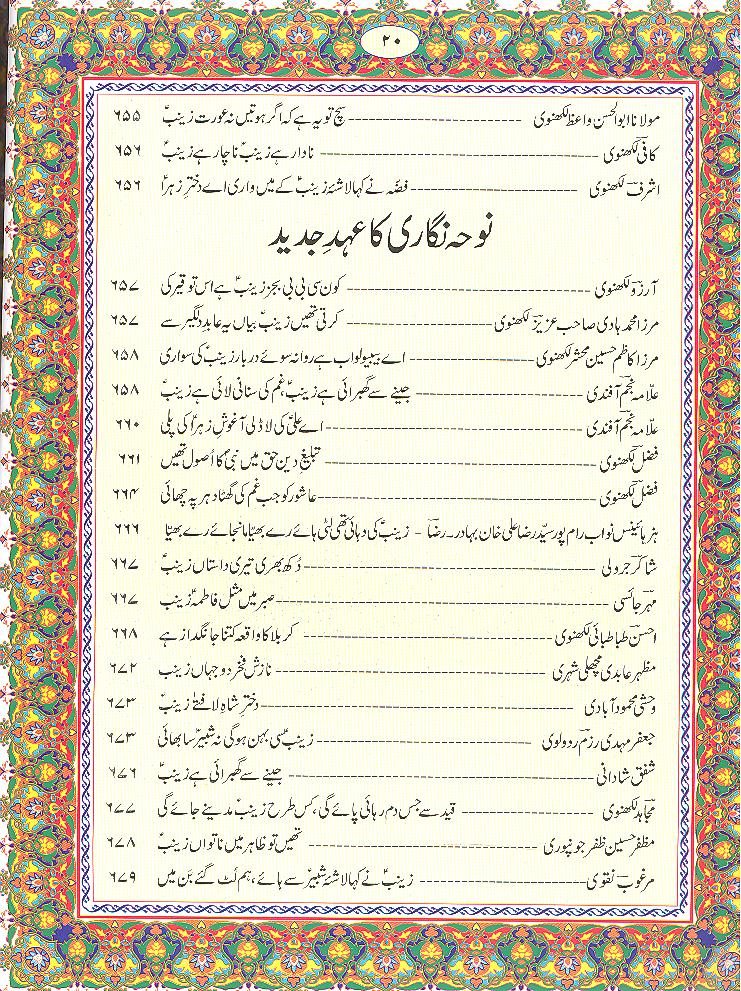 ۲۰
مولانا ابوالحسن واعظ لکھنوی ------ سچ تو یہ ہے کہ اگر ہوتیں نہ عورت زینبؑ ۶۵۵
کافیؔ لکھنوی ------ نادار ہے زینبؑ ناچار ہے زینبؑ ۶۵۶
اشرفؔ لکھنوی ------ فضّہ نے کہا لاشۂ زینبؑ کے میں واری اے دخترِ زہراؑ ۶۵۶
نوحہ نگاری کا عہدِ جدید
آرزوؔ لکھنوی ------ کون سی بی بی بجز زینبؑ ہے اس توقیر کی ۶۵۷
مرزا محمد ہادی صاحب عزیزؔ لکھنوی ------ کرتی تھیں زینبؑ بیاں یہ عابدِ دلگیر سے ۶۵۷
مرزا کاظم حسین محشرؔ لکھنوی ------ اے بیبیو لو اب ہے روانہ سوئے دربار زینبؑ کی سواری ۶۵۸
علّامہ نجمؔ آفندی ------ جینے سے گھبرائی ہے زینبؑ غم کی سنانی لائی ہے زینبؑ ۶۵۸
علّامہ نجمؔ آفندی ------ اے علیؑ کی لاڈلی آغوشِ زہراؑ کی پلی ۶۶۰
فضلؔ لکھنوی ------ تبلیغِ دین حق میں نبیؐ کا اُصول تھیں ۶۶۱
فضلؔ لکھنوی ------ عاشور کو جب غم کی گھٹا دہر پہ چھائی ۶۶۴
ہز ہائینس نواب رام پور سیّد رضا علی خان بہادر۔ رضاؔ - زینبؑ کی دہائی تھی لٹی ہائے رے بھیّا مانجائے رے بھیّا ۶۶۶
شاکرؔ جرولی ------ دُکھ بھری تیری داستاں زینبؑ ۶۶۷
مہرؔ جائسی ------ صبر میں مثل فاطمہؑ زینبؑ ۶۶۷
احسنؔ طباطبائی لکھنوی ------ کربلا کا واقعہ کتنا جانگداز ہے ۶۶۸
مظہرؔ عابدی مچھلی شہری ------ نازشِ فخرِ دو جہاں زینبؑ ۶۷۲
وحشی محمود آبادی ------ دخترِ شاہِ لافتےٰ زینبؑ ۶۷۳
جعفر مہدی رزمؔ ردولوی ------ زینبؑ سی بہن ہوگی نہ شبیرؑ سا بھائی ۶۷۳
شفقؔ شادانی ------ جینے سے گھبرائی ہے زینبؑ ۶۷۶
مجاہدؔ لکھنوی ------ قید سے جس دم رہائی پائے گی، کس طرح زینبؑ مدینے جائے گی ۶۷۷
مظفر حسین ظفرؔ جونپوری ------ تھیں تو ظاہر میں ناتواں زینبؑ ۶۷۸
مرغوبؔ نقوی ------ زینبؑ نے کہا لاشۂ شبیرؑ سے ہائے، ہم لُٹ گئے بَن میں ۶۷۹